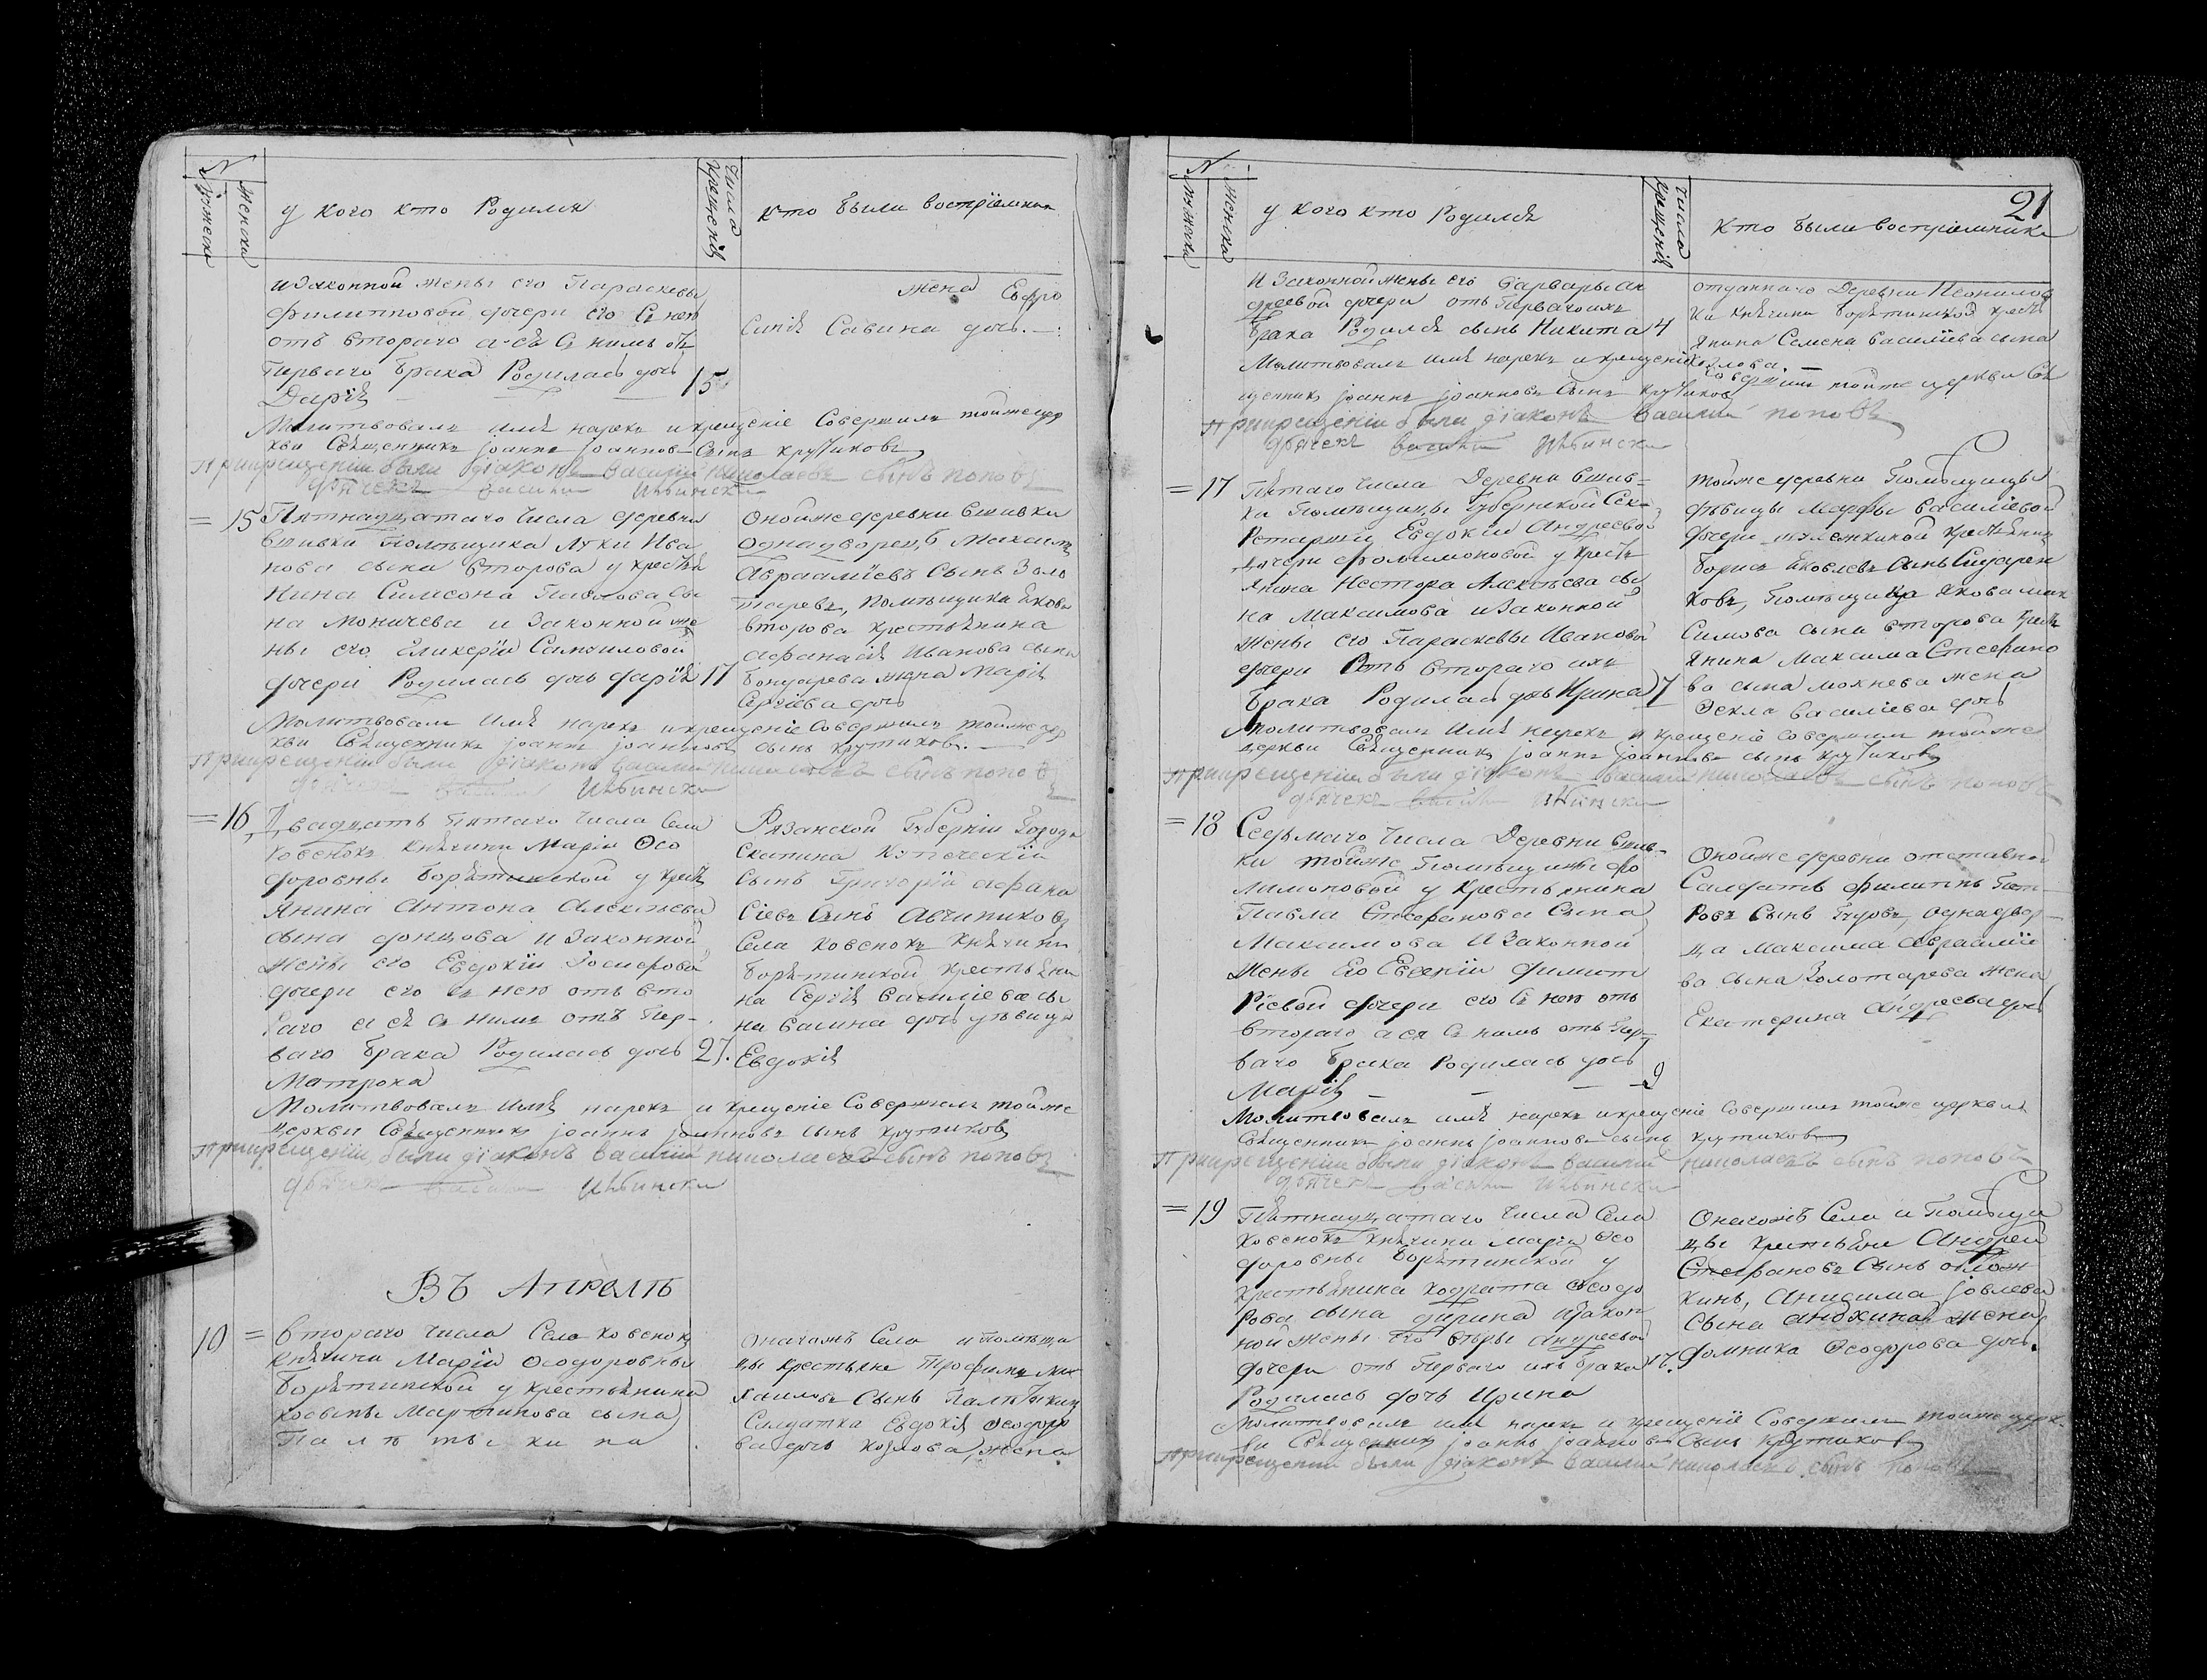 N
Мужеска
Женска
у кого кто Родился
Числа Крещенія
кто были воспріемники
изаконной жены его Параскевы
Филипповой дочери его с нею
отъ втораго а ея с нимъ отъ
перваго брака Родилась дочь
Дарія 15
жена Евфро
Синія Савина дочь.
Молитвовалъ имя нарекъ икрещеніе Совершилъ тойжецер
кви Священникъ іоаннъ іоанновъ Сынъ крутиковъ
прикрещеніи были діаконъ василий николаевъ сынъ поповъ
дьячекъ василий
= 15 Пятнадцатаго числа деревни
вшивки помѣщика Луки Ива
нова сына второва у крестья
нина Симеона Павлова сы
на Моничева и законной же
ны его Гликеріи Самойловой
дочери Родилась дочь Дарія 17
Онойже деревни вшивки
Однадворецъ Максимъ
Авраамїевъ Сынъ Золо
таревъ, помѣщика Якова
второва крестьянина
афанасія Иванова сына
Бондарева жена Марія
Сергіева дочь
Молитвовалъ имя нарекъ икрещеніе Совершилъ тойжецер
кви Священникъ іоаннъ іоанновъ сынъ крутиковъ.
прикрещеніи были діаконъ василий николаевъ сынъ поповъ
дьячекъ василий
= 16, Двадцать пятаго числа Села
ковенокъ княжны Маріи Ѳео
доровны Борятинской у кресть
янина Антона Алексѣева
сына донцова и законной
жены его Евдокїи Іосифовой
дочери его съ нею отъ вто
раго а ея с нимъ отъ пер-
ваго брака Родилась дочь 27.
Матрона
Рязанской Губерніи Города
Скопина купеческій
Сынъ Григорїй афана
сіевъ Сынъ Авчинниковъ
Села ковенокъ княжны
Борятинской крестьяни
на Сергія василіева сы
на васина дочь дѣвица
Евдокія
Молитвовалъ имя нарекъ и крещеніе Совершилъ тойже
церкви Священникъ іоаннъ іоанновъ сынъ крутиковъ
прикрещеніи были діаконъ василий николаевъ сынъ поповъ
дьячекъ василий
ВЪ АПРЕЛѢ
10 = втораго числа Села ковенокъ
княжны Марїи Ѳеодоровны
Борятинской у крестьянина
косьмы Мартинова сына
Палътыкина
Оногожъ Села ипомѣщи
цы крестьяне Трофимъ Ми
хаиловъ Сынъ Палътыкинъ
Салдатка Евдокія Ѳеодоро
ва дочь козлова, жена
21
N
Мужеска
Женска
у кого кто Родился
Число Крещенія
Кто были воспріемники
И Законной жены его Варвары Ан
дреевой дочери отъ Перваго ихъ
брака Родился сынъ Никита 4
отданнаго Деревни
ки княжны Борятинской кресть
янина Семена василіева сына
козлова.
Молитвовалъ имя нарекъ и крещеніе Совершилъ тойже церкви Свя
щенникъ іоаннъ іоанновъ Сынъ крутиковъ
прикрещеніи были діаконъ василий поповъ
дьячекъ василий
= 17 Пятаго числа Деревни вшив-
ки помѣщицы Губернской Сек-
ретарши Евдокіи Андреевой
дочери Фолимоновой у кресть
янина Нестора Алексѣева сы
на Максимова изаконной
жены его Параскевы Ивановой
дочери отъ втораго ихъ
брака Родилась дочь Ирина 7
тойже деревни помѣщицы
дѣвицы Марфы василіевой
дочери крестьянинъ
Борисъ Яковлевъ Сынъ
ковъ, помѣщика Якова мак
симова сына второва кресть
янина Максима Стефано
ва сына мохнева жена
Ѳекла василіева дочь
Молитвовалъ имя нарекъ и крещеніе совершилъ тойже
церкви Священникъ іоаннъ іоанновъ сынъ крутиковъ
прикрещеніи были діаконъ василий николаевъ сынъ поповъ
дьячекъ василий
= 18 Седьмаго числа Деревни вшив-
ки тойже помѣщицы Фо
лимоновой у крестьянина
Павла Стефанова Сына
Максимова изаконной
жены Его Евгеніи Димит
ріевой дочери его с нею отъ
втораго а ея с нимъ отъ пер-
ваго брака Родилась дочь
Марія 9
Онойже деревни отставной
Салдатъ Филиппъ Пет-
ровъ Сынъ однадвор-
ца Максима Авраамїе
ва сына Золотарева жена
Екатерина Андреева дочь
Молитвовалъ имя нарекъ икрещеніе Совершилъ тойже церкви
Священникъ іоаннъ іоанновъ сынъ крутиковъ
прикрещеніи были діаконъ василий николаевъ сынъ поповъ
дьячекъ василий
= 19 Пятнадцатаго числа Села
ковенокъ княжны Маріи Ѳео
доровны Борятинской у
крестьянина кодрата Ѳеодо
рова сына изакон
ной жены его вѣры Андреевой
дочери отъ Перваго ихъ брака 17.
Родилась дочь Ирина
Оногожъ Села и помѣщи
цы крестьяне Андрей
Стефановъ Сынъ
кинъ, Анисима іовлева
сына жена
Домника Ѳеодорова дочь.
Молитвовалъ имя нарекъ и крещеніе Совершилъ тойже церк-
ви Священникъ іоаннъ іоанновъ Сынъ крутиковъ
прикрещеніи были діаконъ василий николаевъ сынъ поповъ